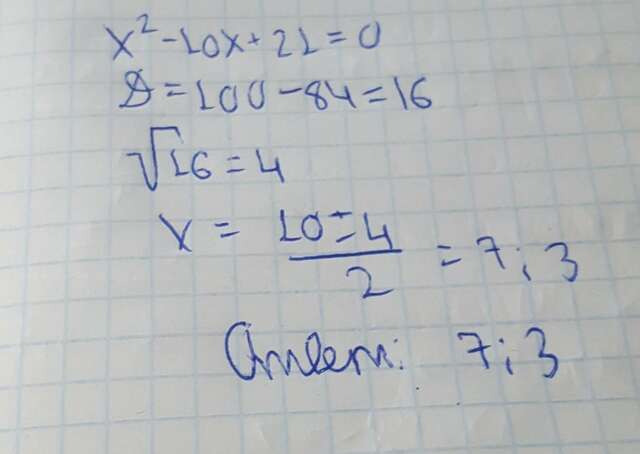 x² - 10x + 21 = 0
D = 100 - 84 = 16
√16 = 4
x = (10 ± 4)/2 = 7; 3
Ответ: 7; 3